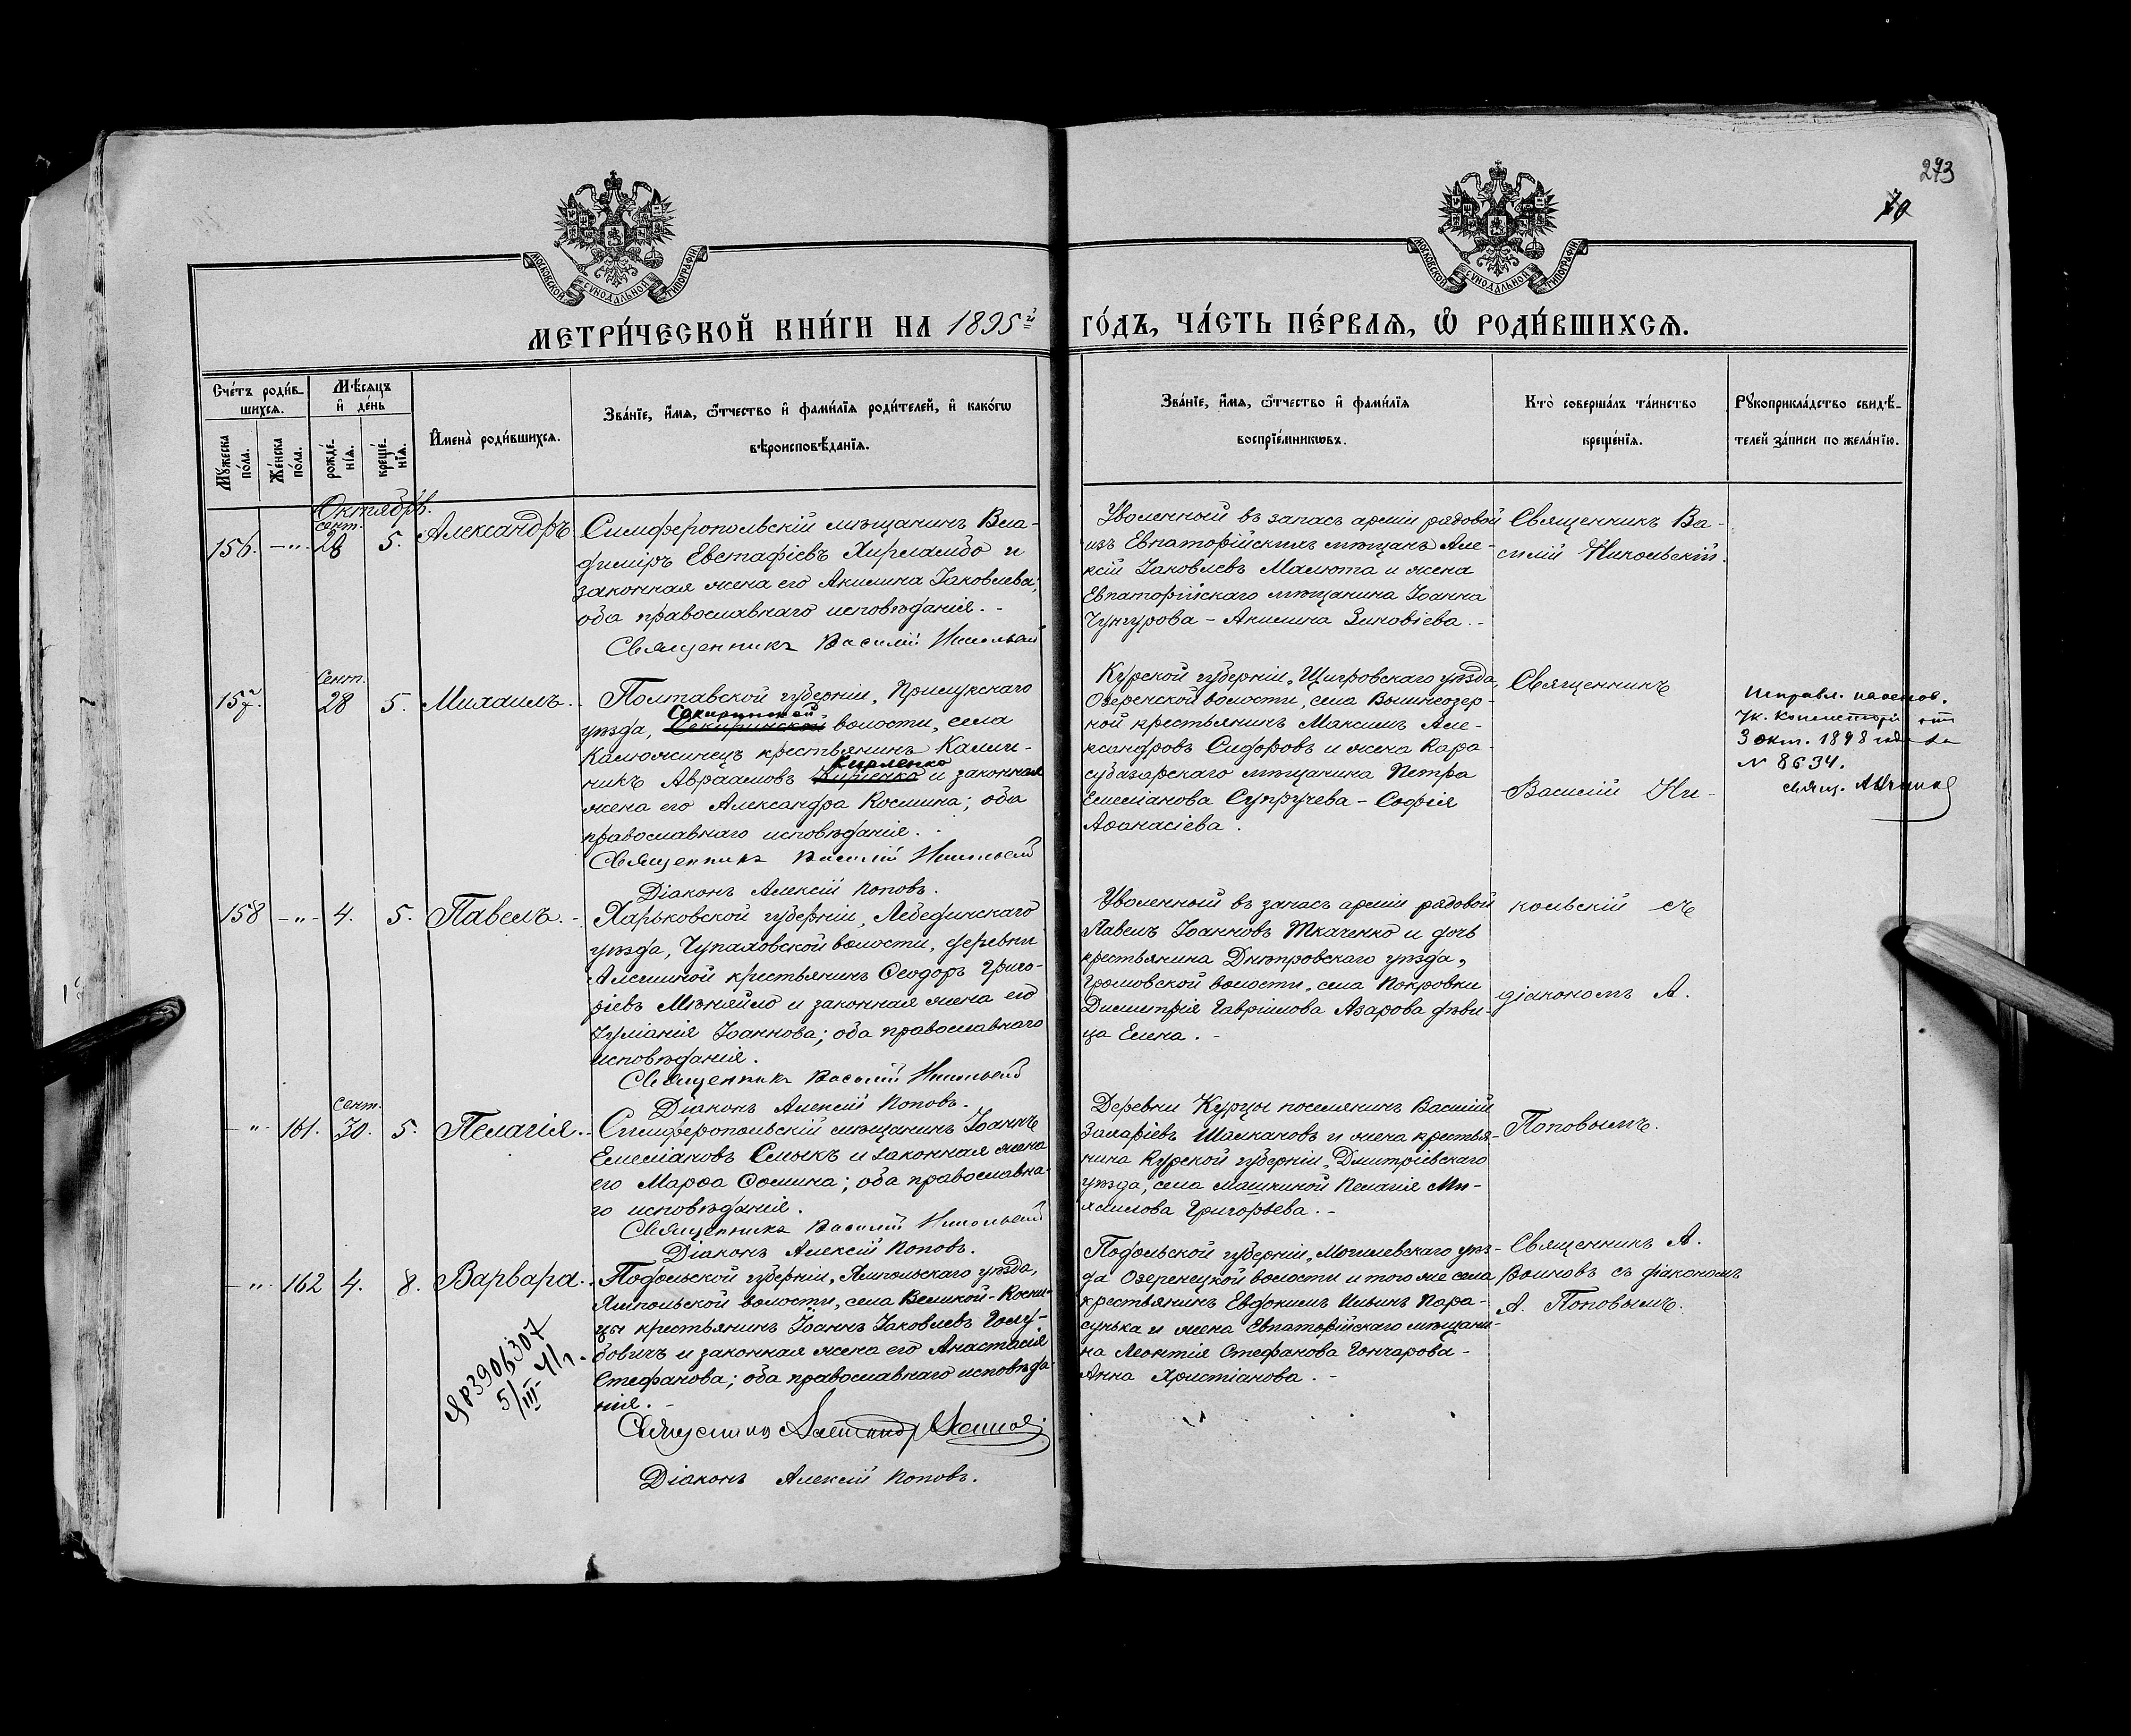 273
70
МОСКОВСКОЙ СУНОДАЛЬНОЙ ТИПОГРАФІИ
МОСКОВСКОЙ СУНОДАЛЬНОЙ ТИПОГРАФІИ
МЕТРИ́ЧЕСКОЙ КНИ́ГИ НА 1895й ГО́ДЪ, ЧА́СТЬ ПЕ́РВАѦ, Ѡ РОДИ́ВШИХСѦ.
Счéтъ роди́в-
шихсѧ.
Мѣ́сѧцъ
и҆ дéнь
Мꙋ́жеска
по́ла.
Жéнска
по́ла.
рождé-
нїѧ.
крещé-
нїѧ.
И҆менà роди́вшихсѧ.
Зва́нїе, и҆́мѧ, ѻ҆́тчество и҆ фами́лїѧ роди́телей, и҆ како́гѡ
вѣроисповѣ́данїѧ.
Зва́нїе, и҆́мѧ, ѻ҆́тчество и҆ фами́лїѧ
воспрїéмникѡвъ.
Кто̀ совершáлъ та́инство
крещéнїѧ.
Рꙋкоприкла́дство свидѣ́-
телей за́писи по желáнїю.
Октябрь.
156. -"- сент. 28 5. Александръ
Симферопольскій мѣщанинъ Вла-
диміръ Евстафіевъ Хирламбо и
законная жена его Акилина Іаковлева;
оба православнаго исповѣданія. -
Священникъ Василій Никольскій
Уволенный въ запасъ арміи рядовой
изъ Евпаторійскихъ мѣщанъ Але-
ксій Іаковлевъ Малюта и жена
Евпаторійскаго мѣщанина Іоанна
Чунгурова - Акилина Зиновіева. -
Священникъ Ва-
силій Никольскій.
157. сент. 28 5. Михаилъ.
Полтавской губерніи, Прилукскаго
Сокиринской
уѣзда, Секиринской волости, села
Калюжинецъ крестьянинъ Калин-
Кирленко
никъ Авраамовъ и законная
жена его Александра Космина; оба
православнаго исповѣданія. -
Священникъ Василій Никольскій
Діаконъ Алексій Поповъ.
Курской губерніи, Щигровскаго уѣзда,
Озеренской волости, села Вышнеозер-
ной крестьянинъ Максимъ Але-
ксандровъ Сидоровъ и жена Кара-
субазарскаго мѣщанина Петра
Емеліанова Супручева - Софія
Аѳанасіева.
Священникъ
Василій Ни-
Исправл.
Ук. Консисторіи отъ
3 окт. 1898 года за
№ 8634.
свящ.
158 -"- 4. 5. Павелъ. -
Харьковской губерніи, Лебединскаго
уѣзда, Чупаховской волости, деревни
Алешиной крестьянинъ Ѳеодоръ Григо-
ріевъ Мѣняйло и законная жена его
Іуліанія Іоаннова; оба православнаго
исповѣданія.
Священникъ Василій Никольскій
Діаконъ Алексій Поповъ.
Уволенный въ запасъ арміи рядовой
Павелъ Іоанновъ Ткаченко и дочь
крестьянина Днѣпровскаго уѣзда,
Громовской волости, села Покровки
Димитрія Гавріилова Азарова дѣви-
ца Елена. -
кольскій съ
діакономъ А.
-"- 161. сент. 30. 5. Пелагія. -
Симферопольскій мѣщанинъ Іоаннъ
Емеліановъ Смыкъ и законная жена
его Марѳа Ѳомина; оба православна-
го исповѣданія.
Священникъ Василій Никольскій
Діаконъ Алексій Поповъ.
Деревни Курцы поселянинъ Василій
Захаріевъ Шалкановъ и жена крестья-
нина Курской губерніи, Дмитріевскаго
уѣзда, села Машкиной Пелагія Ми-
хаилова Григорьева. -
Поповымъ.
-"- 162 4. 8. Варвара. -
Подольской губерніи, Ямпольскаго уѣзда,
Ямпольской волости, села Великой-Косни-
цы крестьянинъ Іоаннъ Іаковлевъ Голу-
бовичъ и законная жена его Анастасія
Стефанова; оба православнаго исповѣда-
нія. -
Священникъ
Діаконъ Алексій Поповъ.
Подольской губерніи, Могилевскаго уѣз-
да Озеренецкой волости и того же села
крестьянинъ Евдокимъ Ильинъ Пара-
сунька и жена Евпаторійскаго мѣщани-
на Леонтія Стефанова Гончарова -
Анна Христіанова. -
Священникъ А.
Волновъ съ діакономъ
А. Поповымъ.
5/III-41г.